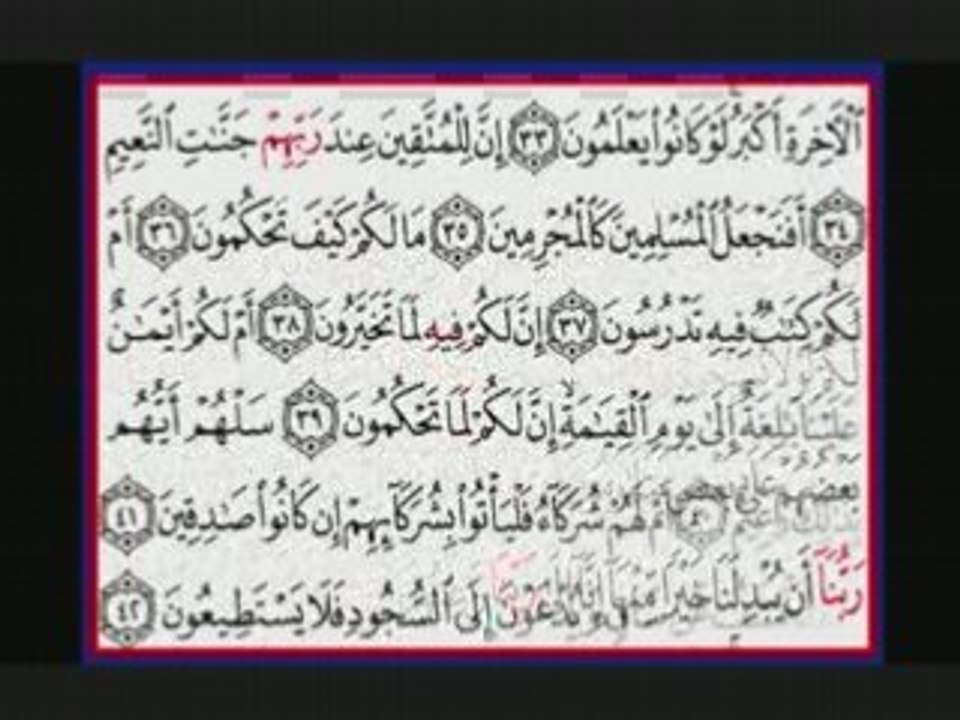 ٱلْأَخِرَةِ أَكْبَرُ لَوْ كَانُوا۟ يَعْلَمُونَ ٣٣ إِنَّ لِلْمُتَّقِينَ عِندَ رَبِّهِمْ جَنَّٰتِ ٱلنَّعِيمِ
٣٤ أَفَنَجْعَلُ ٱلْمُسْلِمِينَ كَٱلْمُجْرِمِينَ ٣٥ مَا لَكُمْ كَيْفَ تَحْكُمُونَ ٣٦ أَمْ
لَكُمْ كِتَٰبٌ فِيهِ تَدْرُسُونَ ٣٧ إِنَّ لَكُمْ فِيهِ لَمَا تَخَيَّرُونَ ٣٨ أَمْ لَكُمْ أَيْمَٰنٌ
عَلَيْنَا بَٰلِغَةٌ إِلَىٰ يَوْمِ ٱلْقِيَٰمَةِ ۙ إِنَّ لَكُمْ لَمَا تَحْكُمُونَ ٣٩ سَلْهُمْ أَيُّهُم
أَمْ لَهُمْ شُرَكَآءُ فَلْيَأْتُوا۟ بِشُرَكَآئِهِمْ إِن كَانُوا۟ صَٰدِقِينَ ٤١
رَبُّنَآ أَن يُبْدِلَنَا خَيْرًا مِّنْهَآ إِلَى ٱلسُّجُودِ فَلَا يَسْتَطِيعُونَ ٤٢